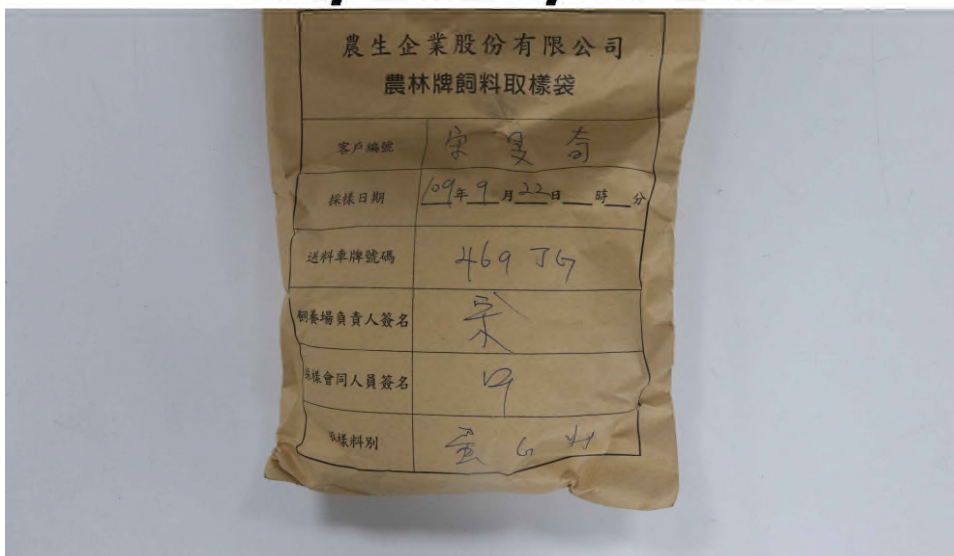 農生企業股份有限公司
農林牌飼料取樣袋
客戶編號 宋
採樣日期 109年9月22日 時 分
送料車牌號碼 469 JG
飼養場負責人簽名 宋
採樣會同人員簽名
採樣料別 蛋 G 料